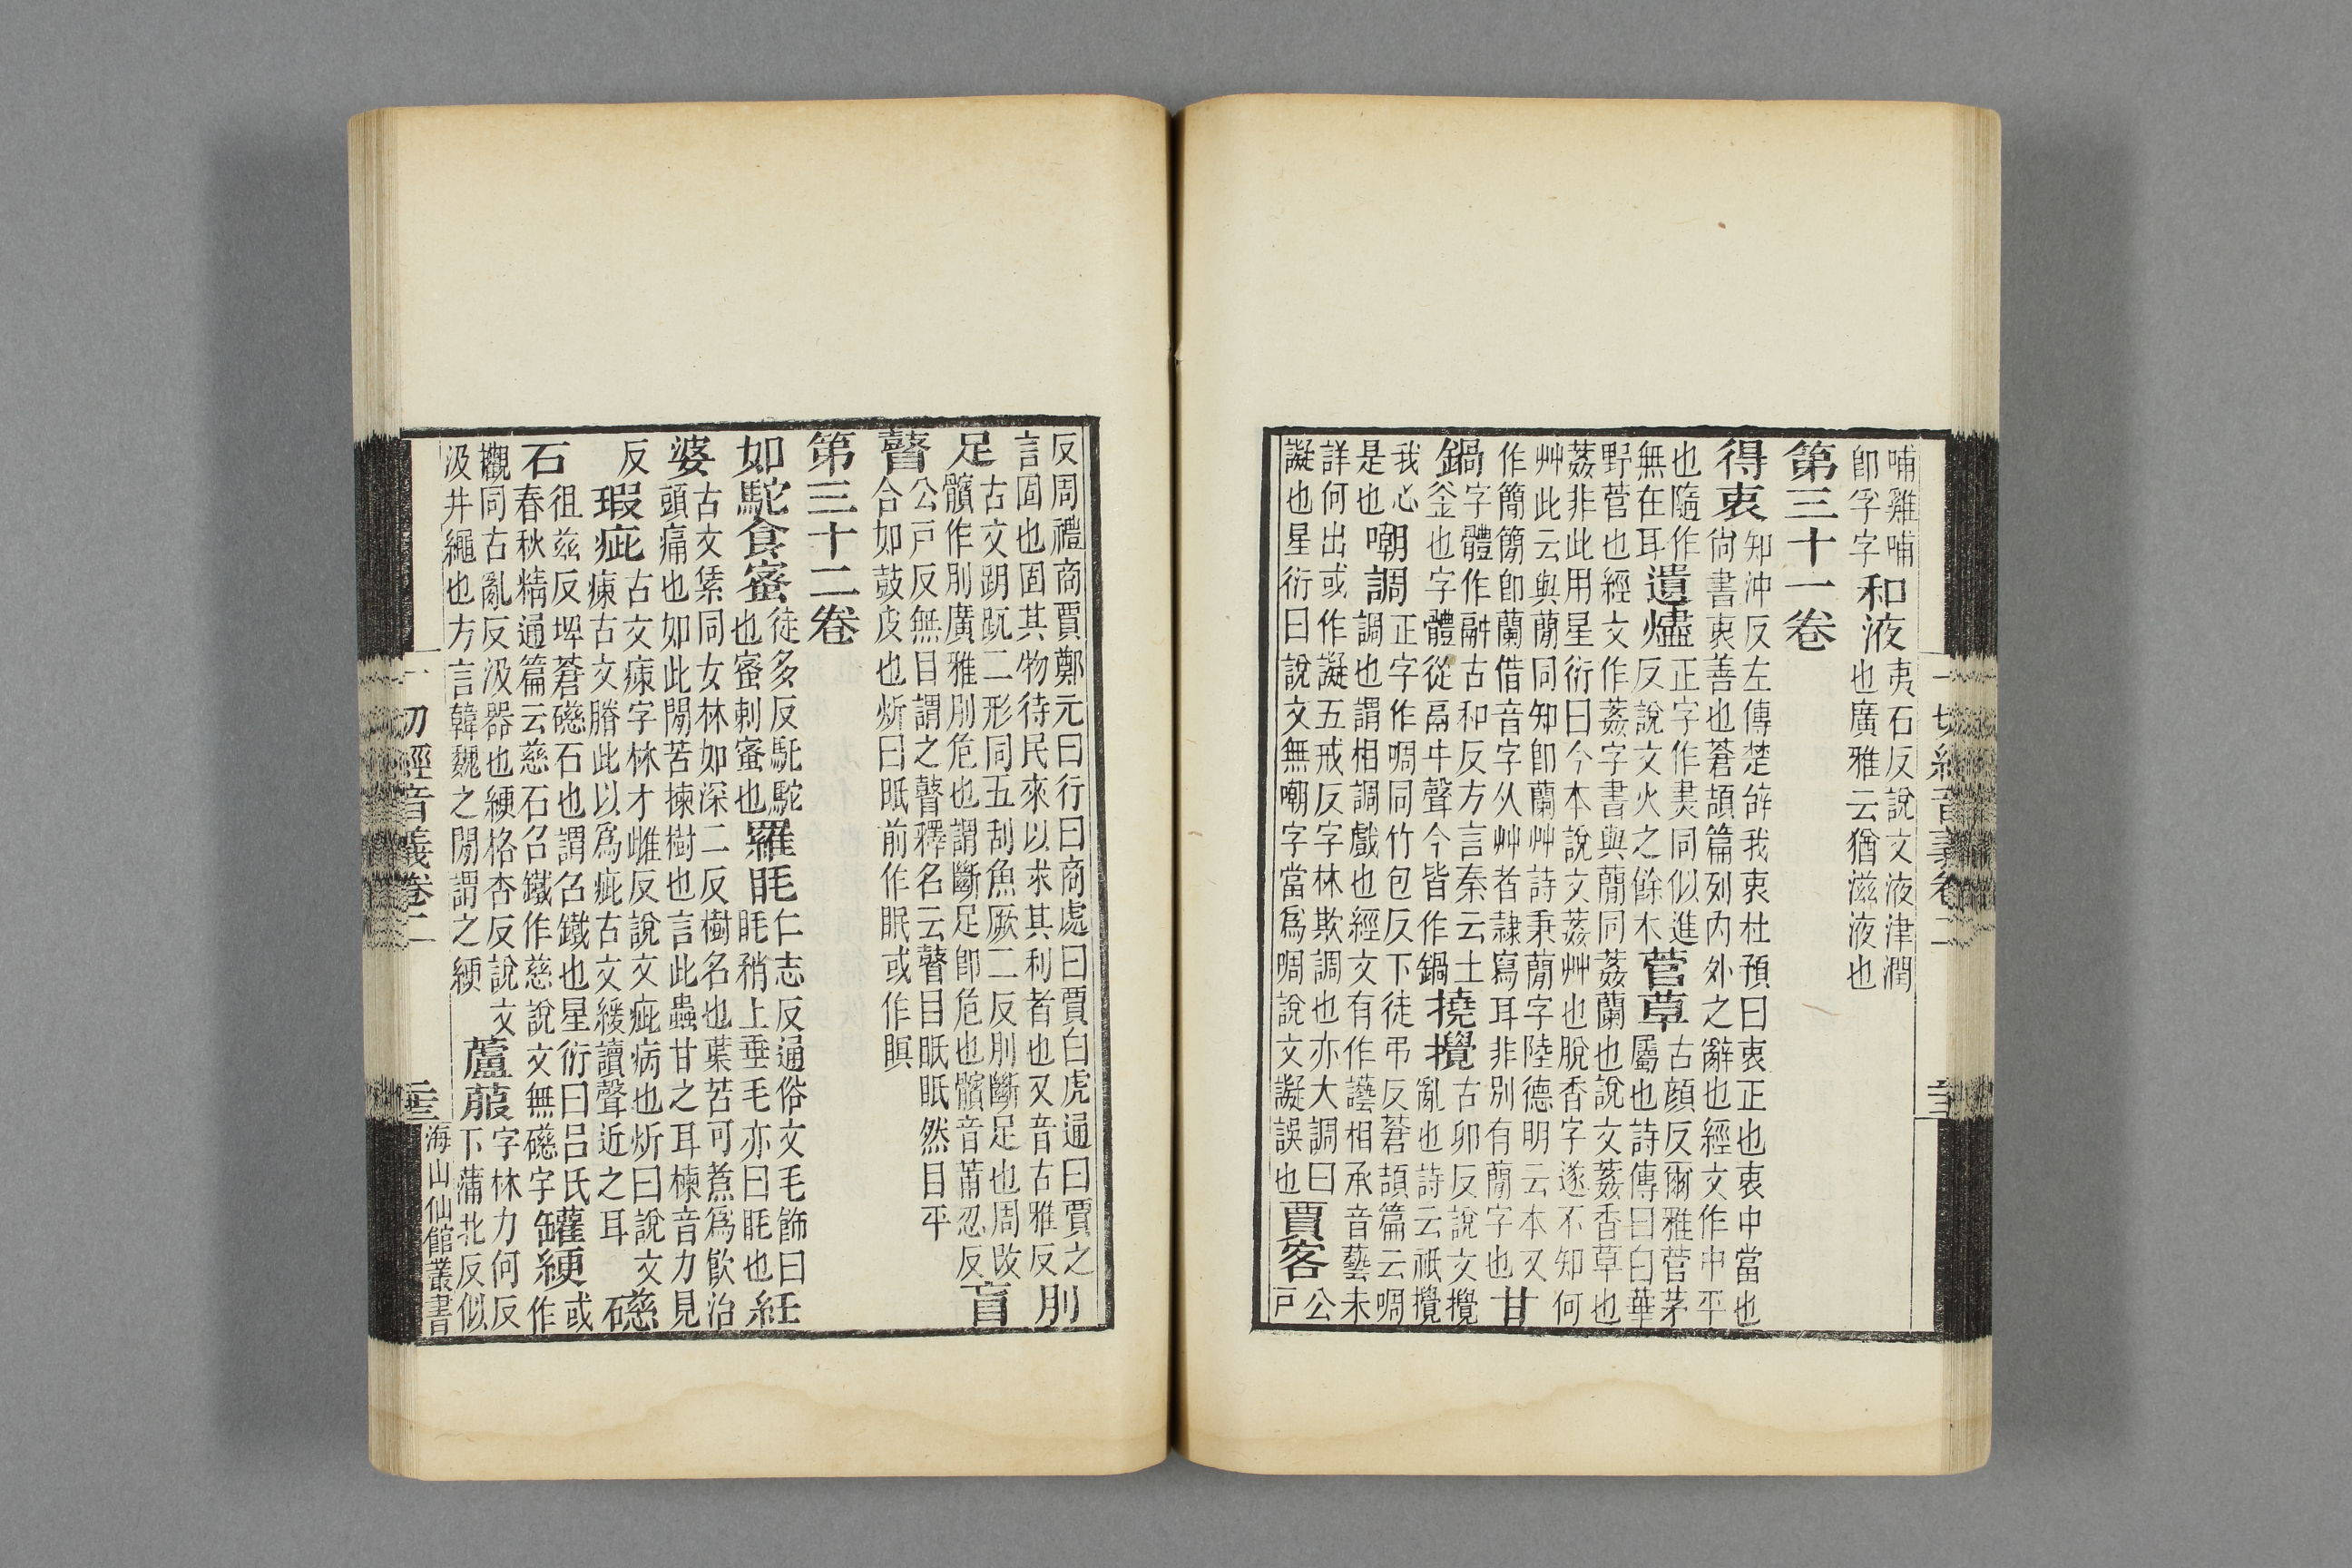 哺雞哺
卽孚字
和液
夷石反說文液津潤
也廣雅云猶滋液也
第三十一卷
得衷
知沖反左傳楚辭我衷杜預曰衷正也衷中當也
尙書衷善也蒼頡篇別內外之辭也經文作中平
也隨作
無在耳
遺燼
正字作㶳同似進
反說文火之餘木
菅草
古顏反爾雅菅茅
屬也詩傳曰白華
野菅也經文作葌字書與蕳同葌蘭也說文葌香草也
葌非此用星衍曰今本說文葌艸也脫香字遂不知何
艸此云與蕳同知卽蘭艸詩秉蕳字陸德明云本又
作簡簡卽蘭借音字从艸者隷寫耳非別有蕳字也
甘
鍋
字體作䰛古和反方言秦云土
釜也字體從鬲㐄聲今皆作鍋
撓攪
古卯反說文攪
亂也詩云祇攪
我心
是也
嘲調
正字作啁同竹包反下徒弔反蒼頡篇云啁
調也謂相調戲也經文有作相承音藝未
詳何出或作譺五戒反字林欺調也亦大調曰
譺也星衍曰說文無嘲字當爲啁說文譺誤也
賈客
公
戸
反周禮商賈鄭元曰行曰商處曰賈白虎通曰賈之
言固也固其物待民來以求其利者也又音古雅反
刖
足
古文跀䟡二形同五刮魚厥二反刖斷足也周改
髕作刖廣雅刖危也謂斷足卽危也髕音忍反
盲
瞽
公戸反無目謂之瞽釋名云瞽目眠眠然目平
合如鼓皮也炘曰眂前作眠或作瞑
第三十二卷
如駝食蜜
徒多反馲駝
也蜜剌蜜也
羅毦
仁志反通俗文毛飾曰
毦稍上垂毛亦曰毦也
紝
婆
古文同女林如深二反樹名也葉苦可煮爲飮治
頭痛也如此閒苦楝樹也言此蟲甘之耳楝音力見
反
瑕疵
古文字林才雌反說文疵病也炘曰說文
古文此以爲疵古文緩讀聲近之耳
礠
石
徂茲反埤蒼礠石也謂召鐵也星衍曰呂氏
春秋精通篇云慈石召鐵作慈說文無礠字
罐綆
或
作
觀同古亂反汲器也綆格杏反說文
汲井繩也方言韓魏之閒謂之綆
蘆菔
字林力何反
下蒲北反似
一切經音義卷二
海山仙館叢書